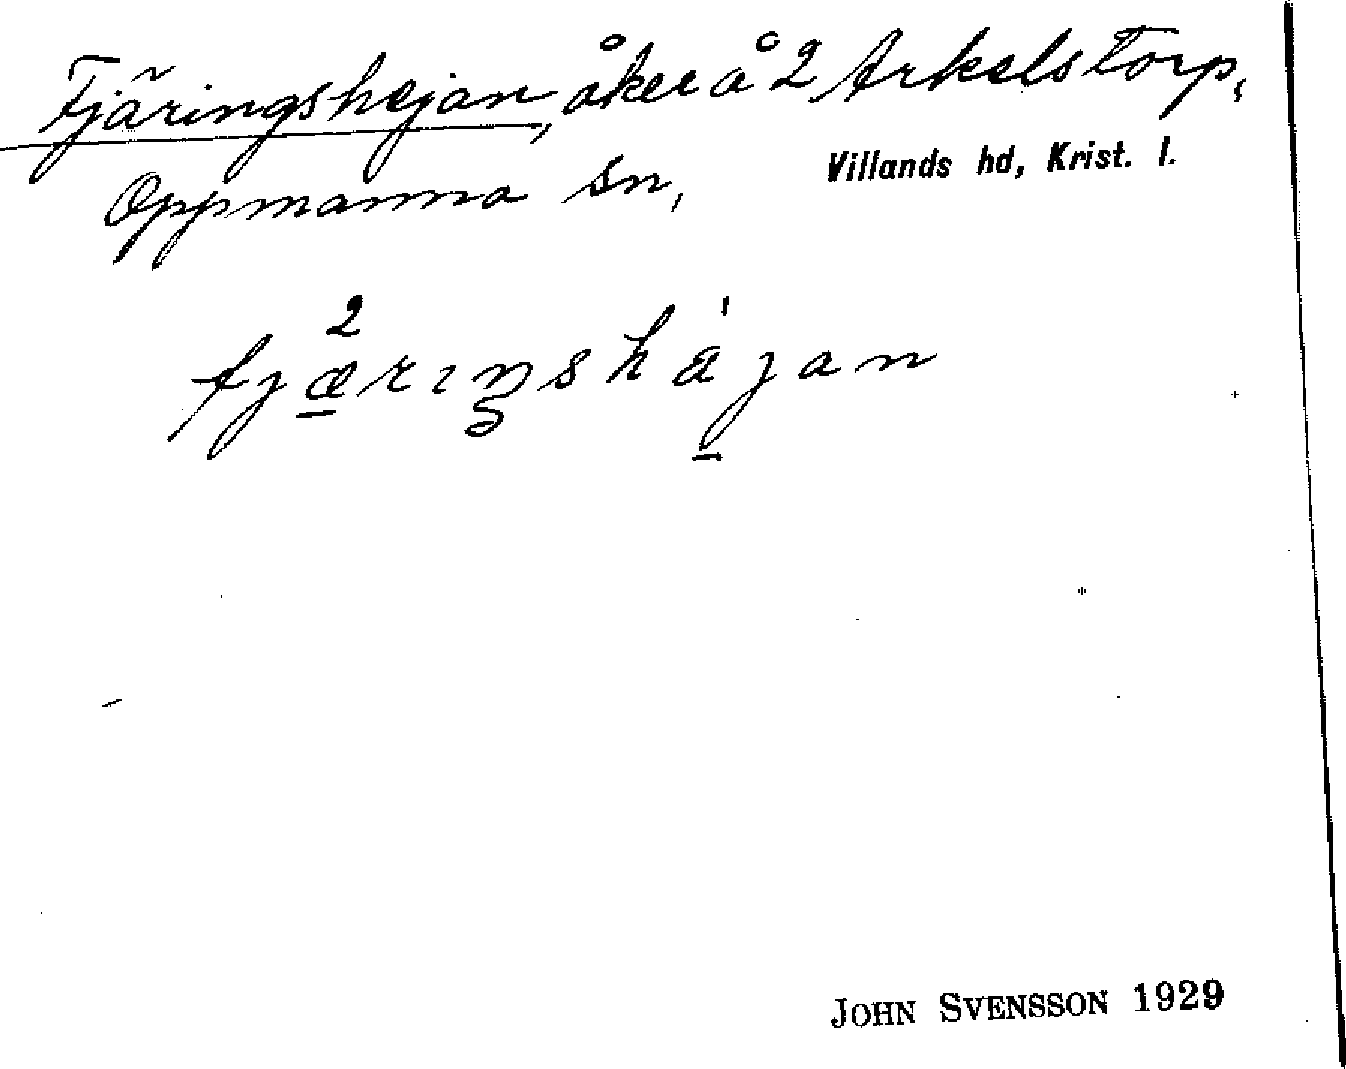 Fjäringshejan, åker å 2 Arkelstorp,
Oppmanna sn, Villands hd, Krist. l.
JOHN SVENSSON 1929